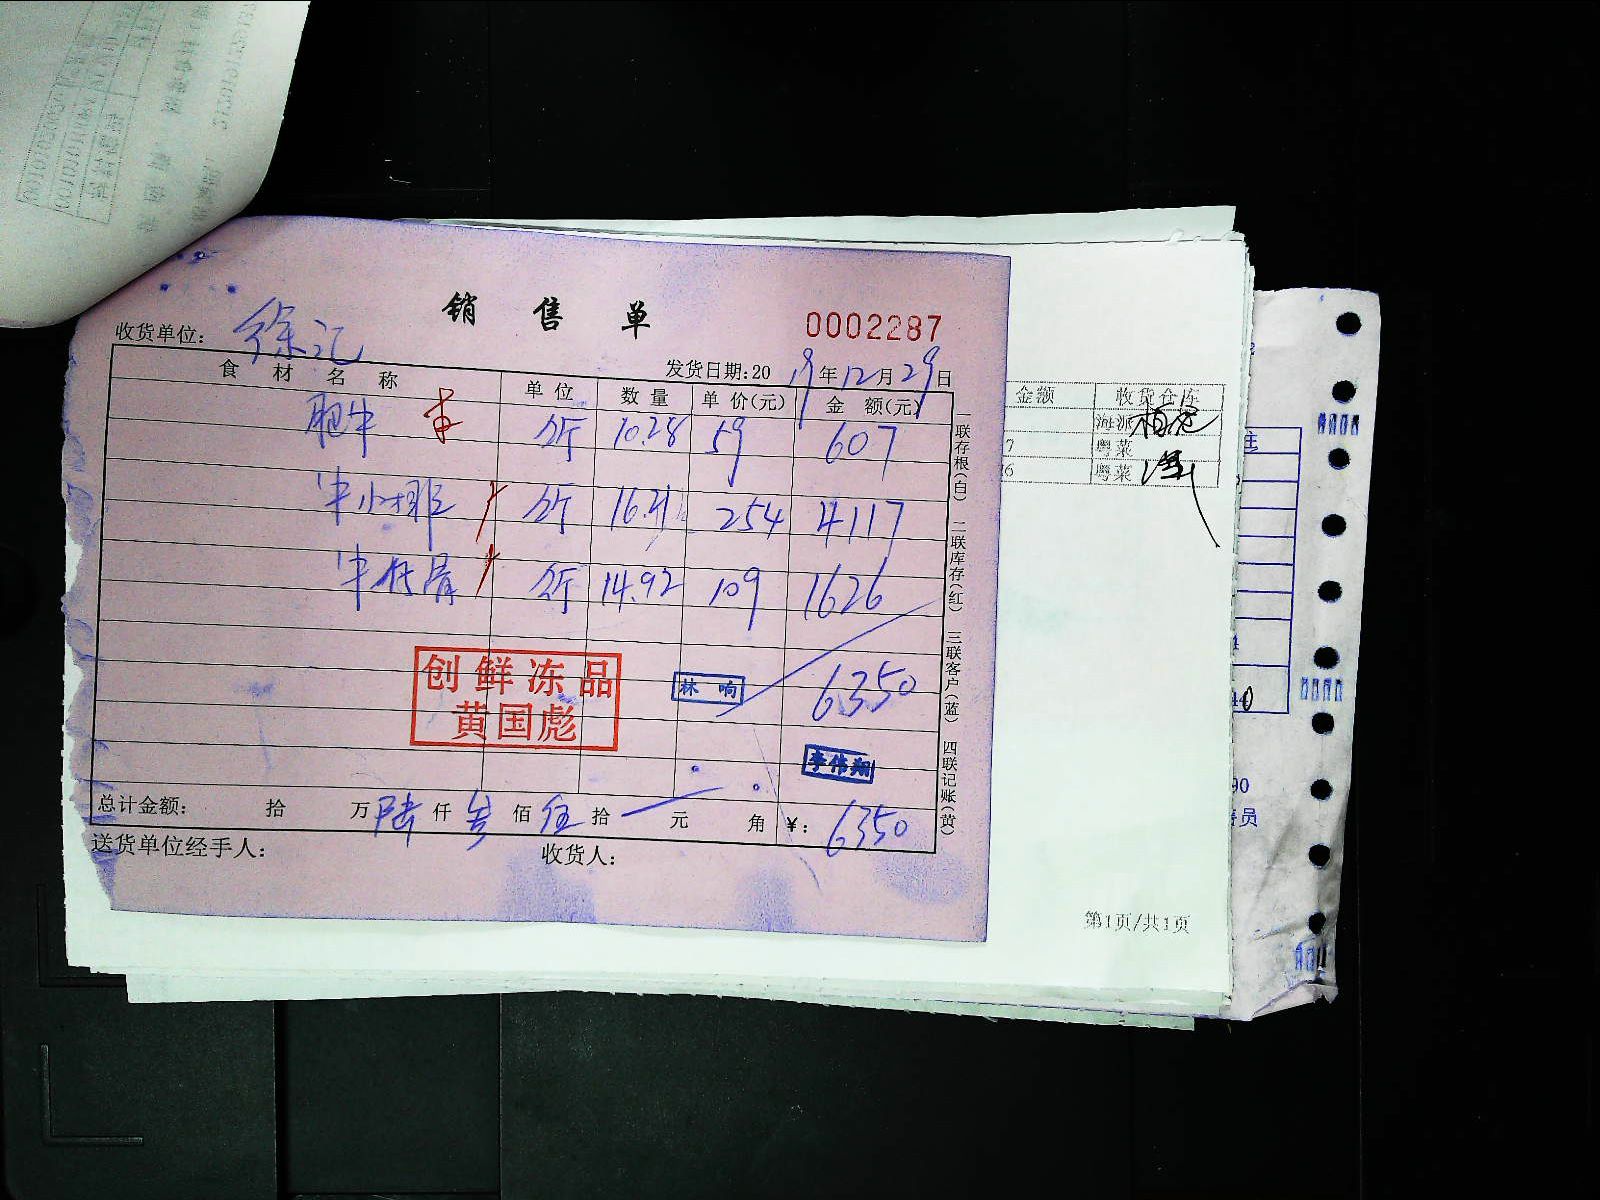 销售单
0002287
收货单位: 徐记
发货日期:2019年12月29日
食材名称 单位 数量 单价(元) 金额(元)
肥牛 公斤 10.28 59 607
牛小排 公斤 16.21 254 4117
牛仔骨 公斤 14.92 109 1626
6350
创鲜冻品
黄国彪
林响
李伟翔
总计金额: 拾 万 陆 仟 叁 佰 伍 拾 元 角 ¥: 6350
送货单位经手人: 收货人:
一联存根(白) 二联库存(红) 三联客户(蓝) 四联记账(黄)
金额 收货仓库
7 粤菜
6 粤菜
第1页/共1页
90
员